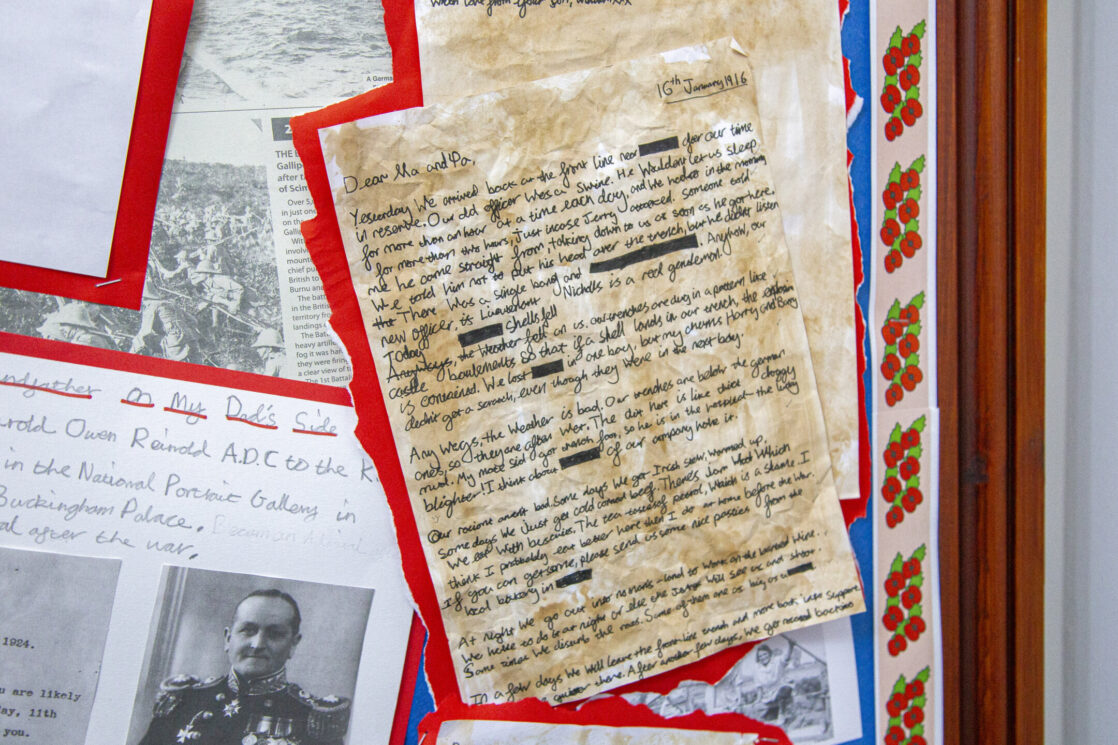 With love from your son,
A Germa
2
THE
Gallip
after t
of Scim
Over 5,
in just on
on the
Galli
With
involve
moun
chief pu
British to
Burnu an
The batt
in the British
territory from
landings
The Batt
heavy artille
fog it was har
they were firing
a clear view of t
The 1st Battal
16th January 1916
Dear Ma and Pa,
Yesterday we arrived back at the front line near after our time
in reserve. Our old officer was a swine. He wouldn't let us sleep
for more than an hour at a time each day, and we had in the morning
for more than this hours, just incase Jerry attacked. Someone told
me he came straight from talking down to us as soon as he got here.
We told him not to put his head over the trench, but he didn't listen
There was a single bang and Anyhow, our
new officer, is Lieutenant Nicholls is a real gentleman.
Today shells fell
Anyways, the weather fell on us. our trenches are dug in a pattern like
castle so that if a shell lands in our trench, the explosion
is contained. We lost if one boy, but my chums Harry and Barry
didn't get a scratch, even though they were in the next bay
Any wegs, the weather is bad. Our trenches are below the german
ones, so they are after wet. The dirt here is like thick claggy
mud. My mate Sid's got trench foot, so he is in the hospital the lucky
bleighter. I think about of our company have it.
Our racions arent bad. Some days we get Irish stew, warmed up,
some days we just get cold corned beef. There's Jam Wot Which
we eat with biscuits. The tea tastes of petrol, which is a shame. I
think I probably eat better here than I do at home before the war.
If you can get some, please send us some nice pasties of from the
local bakery in
At night we go out into no mans-land to work on the barbed wire.
We have to do it at night or else the Jerries will see us and shoot.
Some times we disturb the rats. Some of them are as big as a
In a few days we will leave the front-line trench and move back into support
quieter there. After another few days, we get moved back to
ndfather On My Dad's Side
arold Owen Reinold A.D.C to the K
in the National Portrait Gallery in
Buckingham Palace.
al after the war.
1924.
u are likely
ay, 11th
you.